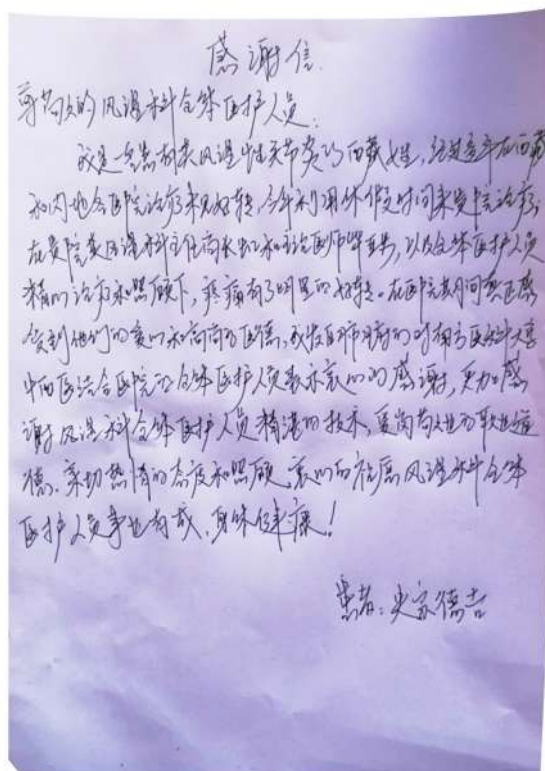 感谢信
尊敬的风湿科全体医护人员:
我是一名患有类风湿性关节炎的西藏女性,经过多年在西藏
和内地各医院治疗未见好转,今年利用休假时间来贵院治疗,
在贵院类风湿科主任 和主治医师 ,以及全体医护人员
精心治疗和照顾下,疼痛有了明显的好转。在医院期间真正感
受到他们的爱心和高尚的医德,我发自肺腑的对南方医科大学
中西医结合医院的全体医护人员表示衷心的感谢,更加感
谢风湿科全体医护人员精湛的技术,爱岗敬业的职业道
德,亲切热情的态度和照顾,衷心的祝愿风湿科全体
医护人员事业有成,身体健康!
患者:史家德吉